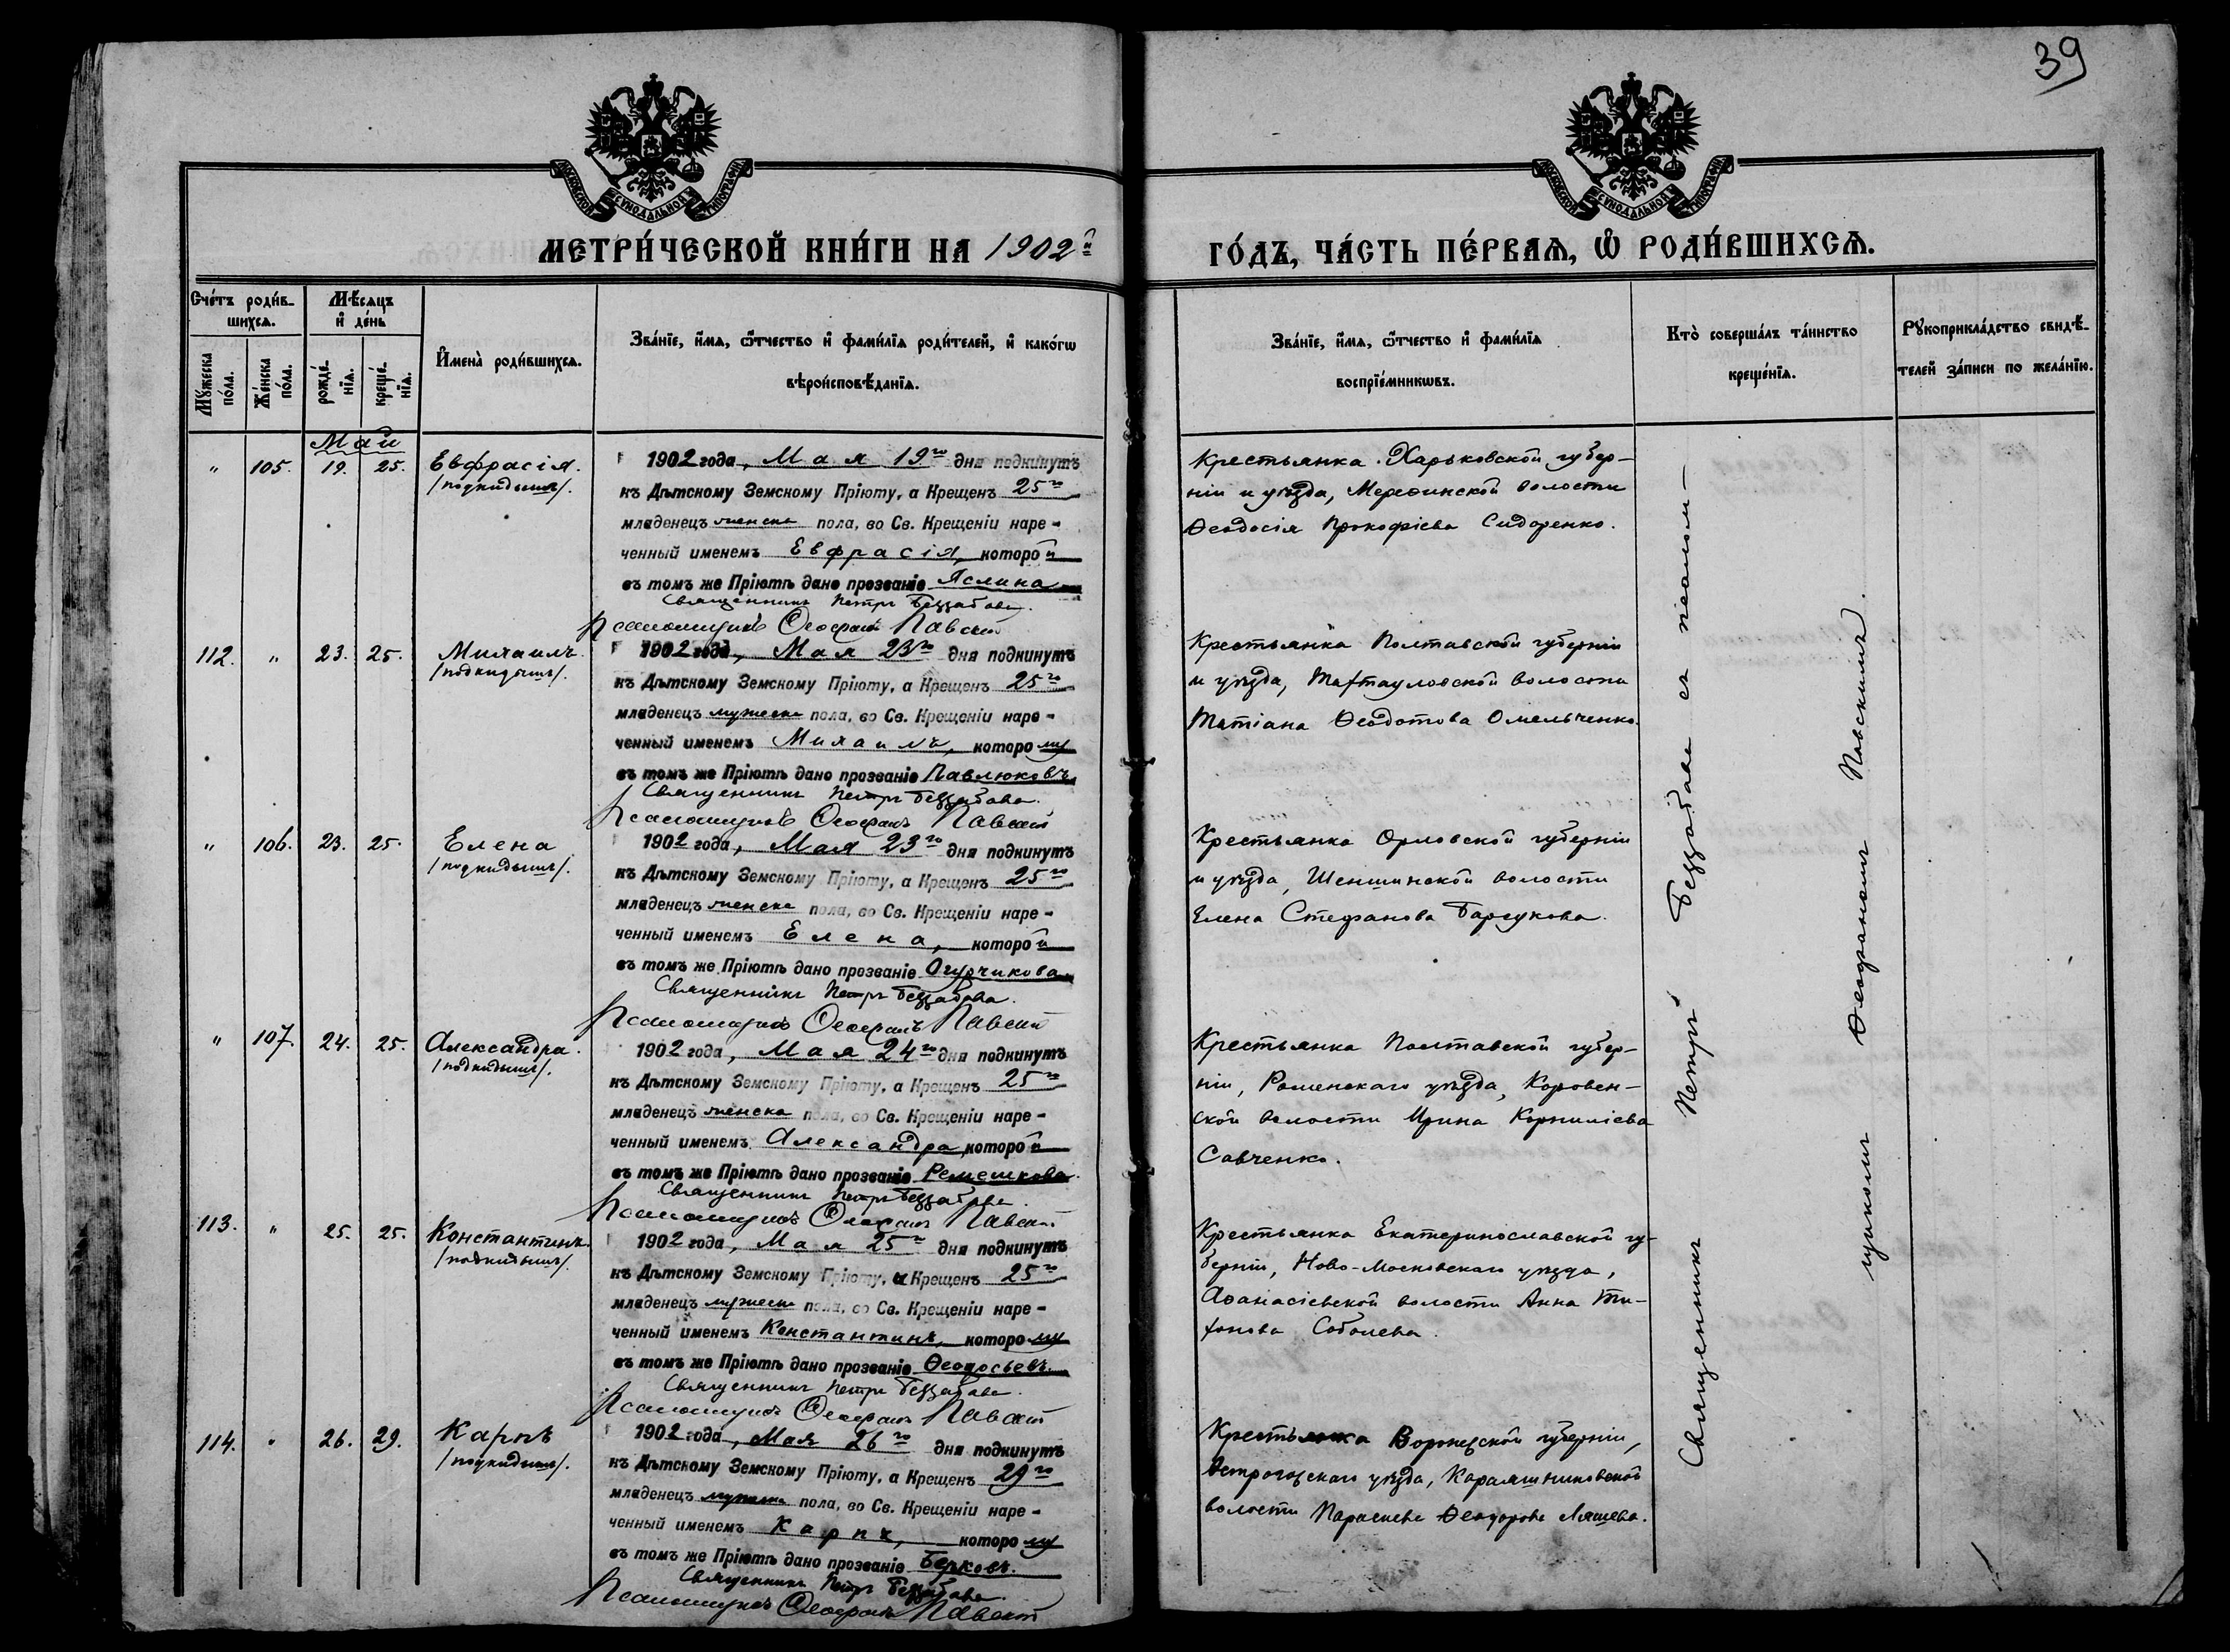 39
МОСКОВСКОЙ СѴНОДАЛЬНОЙ ТИПОГРАФІИ
МОСКОВСКОЙ СѴНОДАЛЬНОЙ ТИПОГРАФІИ
МЕТРИ́ЧЕСКОЙ КНИ́ГИ НА 1902й
ГО́ДЪ, ЧА́СТЬ ПЕ́РВАѦ, Ѡ҆ РОДИ́ВШИХСѦ.
Сче́тъ роди́в-
шихсѧ.
Мѣ́сѧцъ
и҆ де́нь
Мꙋ́жеска
по́ла.
Же́нска
по́ла.
рожде́-
нїѧ.
креще́-
нїѧ.
И҆мена̀ роди́вшихсѧ.
Зва́нїе, и҆́мѧ, ѻ҆́тчество и҆ фами́лїѧ роди́телей, и҆ како́гѡ
вѣроисповѣ́данїѧ.
Зва́нїе, и҆́мѧ, ѻ҆́тчество и҆ фами́лїѧ
воспрїе́мникѡвъ.
Кто̀ соверша́лъ та́инство
креще́нїѧ.
Рꙋкоприкла́дство свидѣ́-
телей за́писи по жела́нїю.
Май
" 105. 19. 25. Евфрасія.
/подкидышъ/.
1902 года, Мая 19го дня подкинутъ
къ Дѣтскому Земскому Пріюту, а Крещенъ 25го
младенецъ женска пола, во Св. Крещеніи наре-
ченный именемъ Евфрасія, которой
въ томъ же Пріютѣ дано прозваніе Яслина
Священникъ Петръ Беззабава.
Псаломщикъ Ѳеофанъ Павскій
Крестьянка Харьковской губер-
ніи и уѣзда, Мерефинской волости
Ѳеодосія Прокофіева Сидоренко.
112. " 23. 25. Михаилъ
/подкидышъ/.
1902 года, Мая 23го дня подкинутъ
къ Дѣтскому Земскому Пріюту, а Крещенъ 25го
младенецъ мужеска пола, во Св. Крещеніи наре-
ченный именемъ Михаилъ, которому
въ томъ же Пріютѣ дано прозваніе Павлюковъ
Священникъ Петръ Беззабава.
Псаломщикъ Ѳеофанъ Павскій
Крестьянка Полтавской губерніи
и уѣзда, Тахтауловской волости
Татіана Ѳеодотова Омельченко.
" 106. 23. 25. Елена
/подкидышъ/.
1902 года, Мая 23го дня подкинутъ
къ Дѣтскому Земскому Пріюту, а Крещенъ 25го
младенецъ женска пола, во Св. Крещеніи наре-
ченный именемъ Елена, которой
въ томъ же Пріютѣ дано прозваніе Огурчикова
Священникъ Петръ Беззабава.
Псаломщикъ Ѳеофанъ Павскій
Крестьянка Орловской губерніи
и уѣзда, Шеншинской волости
Елена Стефанова Барсукова.
" 107. 24. 25. Александра.
/подкидышъ/.
1902 года, Мая 24го дня подкинутъ
къ Дѣтскому Земскому Пріюту, а Крещенъ 25го
младенецъ женска пола, во Св. Крещеніи наре-
ченный именемъ Александра, которой
въ томъ же Пріютѣ дано прозваніе Ремешкова.
Священникъ Петръ Беззабава.
Псаломщикъ Ѳеофанъ Павскій
Крестьянка Полтавской губер-
ніи, Роменскаго уѣзда, Коровен-
ской волости Ирина Корниліева
Савченко.
113. " 25. 25. Константинъ.
/подкидышъ/.
1902 года, Мая 25го дня подкинутъ
къ Дѣтскому Земскому Пріюту, а Крещенъ 25го
младенецъ мужеска пола, во Св. Крещеніи наре-
ченный именемъ Константинъ, которому
въ томъ же Пріютѣ дано прозваніе Ѳеодосьевъ.
Священникъ Петръ Беззабава.
Псаломщикъ Ѳеофанъ Павскій
Крестьянка Екатеринославской гу-
берніи, Ново-Московскаго уѣзда,
Аѳанасіевской волости Анна Ти-
хонова Соболева.
114. " 26. 29. Карпъ
/подкидышъ/.
1902 года, Мая 26го дня подкинутъ
къ Дѣтскому Земскому Пріюту, а Крещенъ 29го
младенецъ мужеска пола, во Св. Крещеніи наре-
ченный именемъ Карпъ, которому
въ томъ же Пріютѣ дано прозваніе Берковъ.
Священникъ Петръ Беззабава.
Псаломщикъ Ѳеофанъ Павскій
Крестьянка Воронежской губерніи,
Острогожскаго уѣзда, Караяшниковской
волости Параскева Ѳеодорова Ляшева.
Священникъ Петръ Беззабава съ псалом-
щикомъ Ѳеофаномъ Павскимъ.